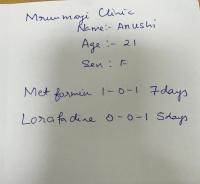 Mrunmayi Clinic
Name:- Anushi
Age :- 21
Sex : F
Metformin 1-0-1 7days
Loratadine 0-0-1 5days